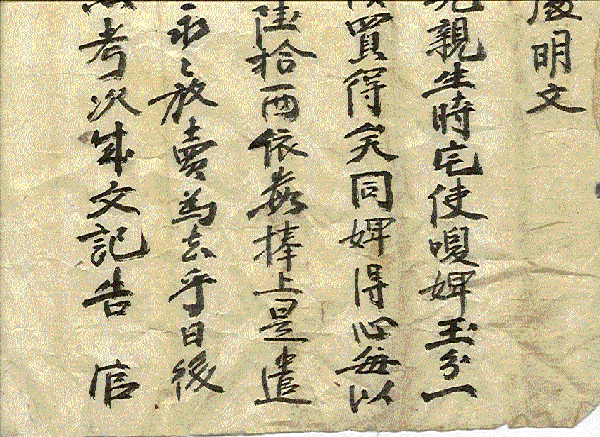 明文
親生時宅使喚婢玉分一
買得矣同婢得心每以
陸拾兩依數捧上是遣
永〻放賣為去乎日後
考次成文記告 官